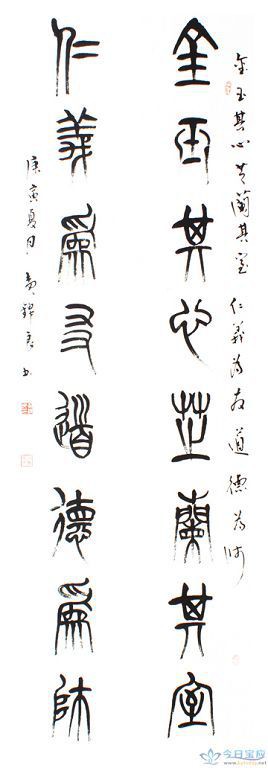 金玉其心芝蘭其室 仁義為友道德為師
金玉其心芷蘭其室
仁義爲友道德爲師
庚寅夏月 黄錦君書
今日宝应